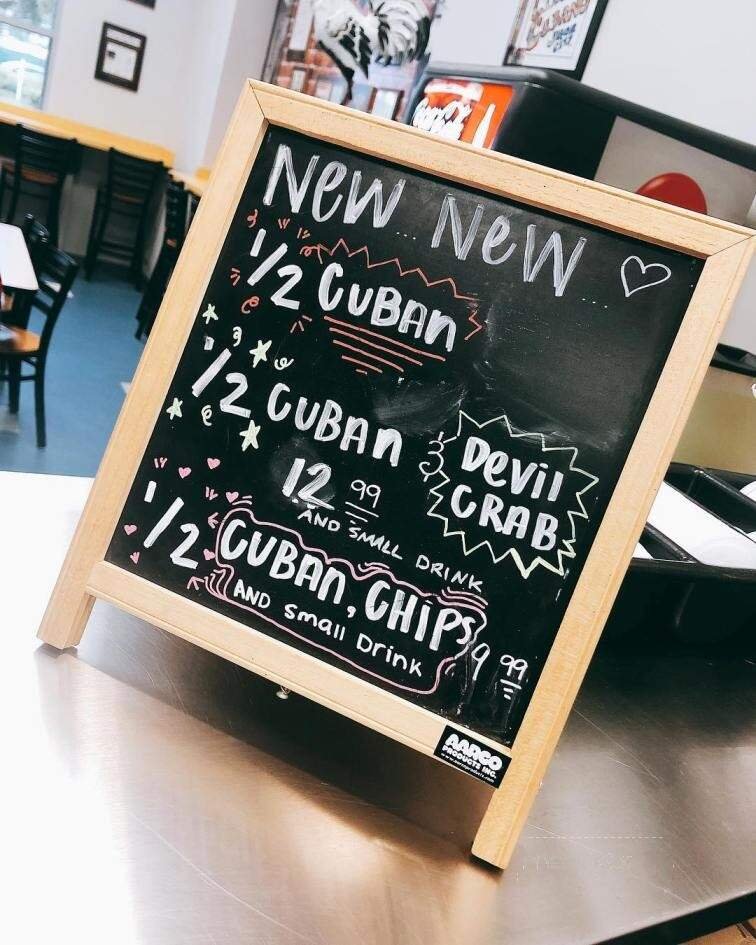 New... New....
1/2 CUBAN
1/2 CUBAN
Devil
CRAB
12 99
AND SMALL DRINK
1/2 CUBAN, CHIPS
AND Small Drink
9 99
AARCO
PRODUCTS INC.